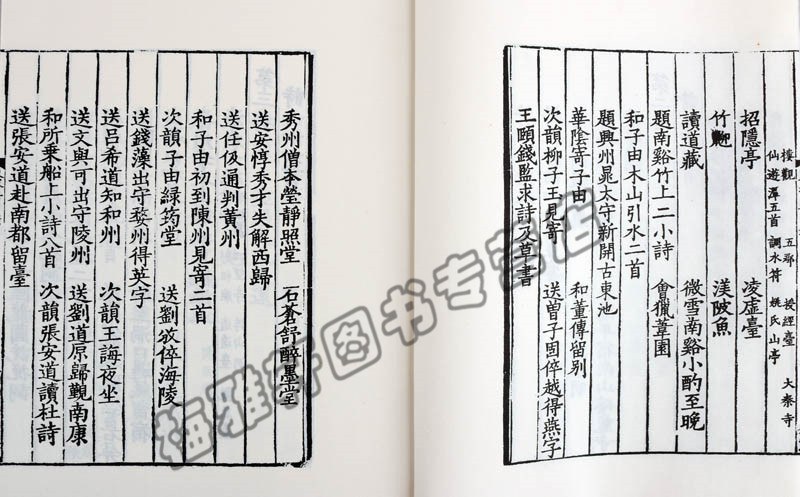 樓觀 五郡 授經臺 大秦寺
仙遊潭五首 調水符 姚氏山亭
招隱亭 凌虛臺
竹𪕋 渼陂魚
讀道藏 微雪南谿小酌至晚
題南谿竹上二小詩 會獵葦園
和子由木山引水二首
題興州晁太守新開古東池
華陰寄子由 和董傳留別
次韻柳子玉見寄 送曾子固倅越得燕字
王頤錢監求詩及草書
秀州僧本瑩靜照堂 石蒼舒醉墨堂
送安惇秀才失解西歸
送任伋通判黃州
和子由初到陳州見寄二首
次韻子由綠筠堂 送劉攽倅海陵
送錢藻出守婺州得英字
送呂希道知和州 次韻王誨夜坐
送文與可出守陵州 送劉道原歸覲南康
和所乘船上小詩八首 次韻張安道讀杜詩
送張安道赴南都留臺
梅雅軒图书专营店